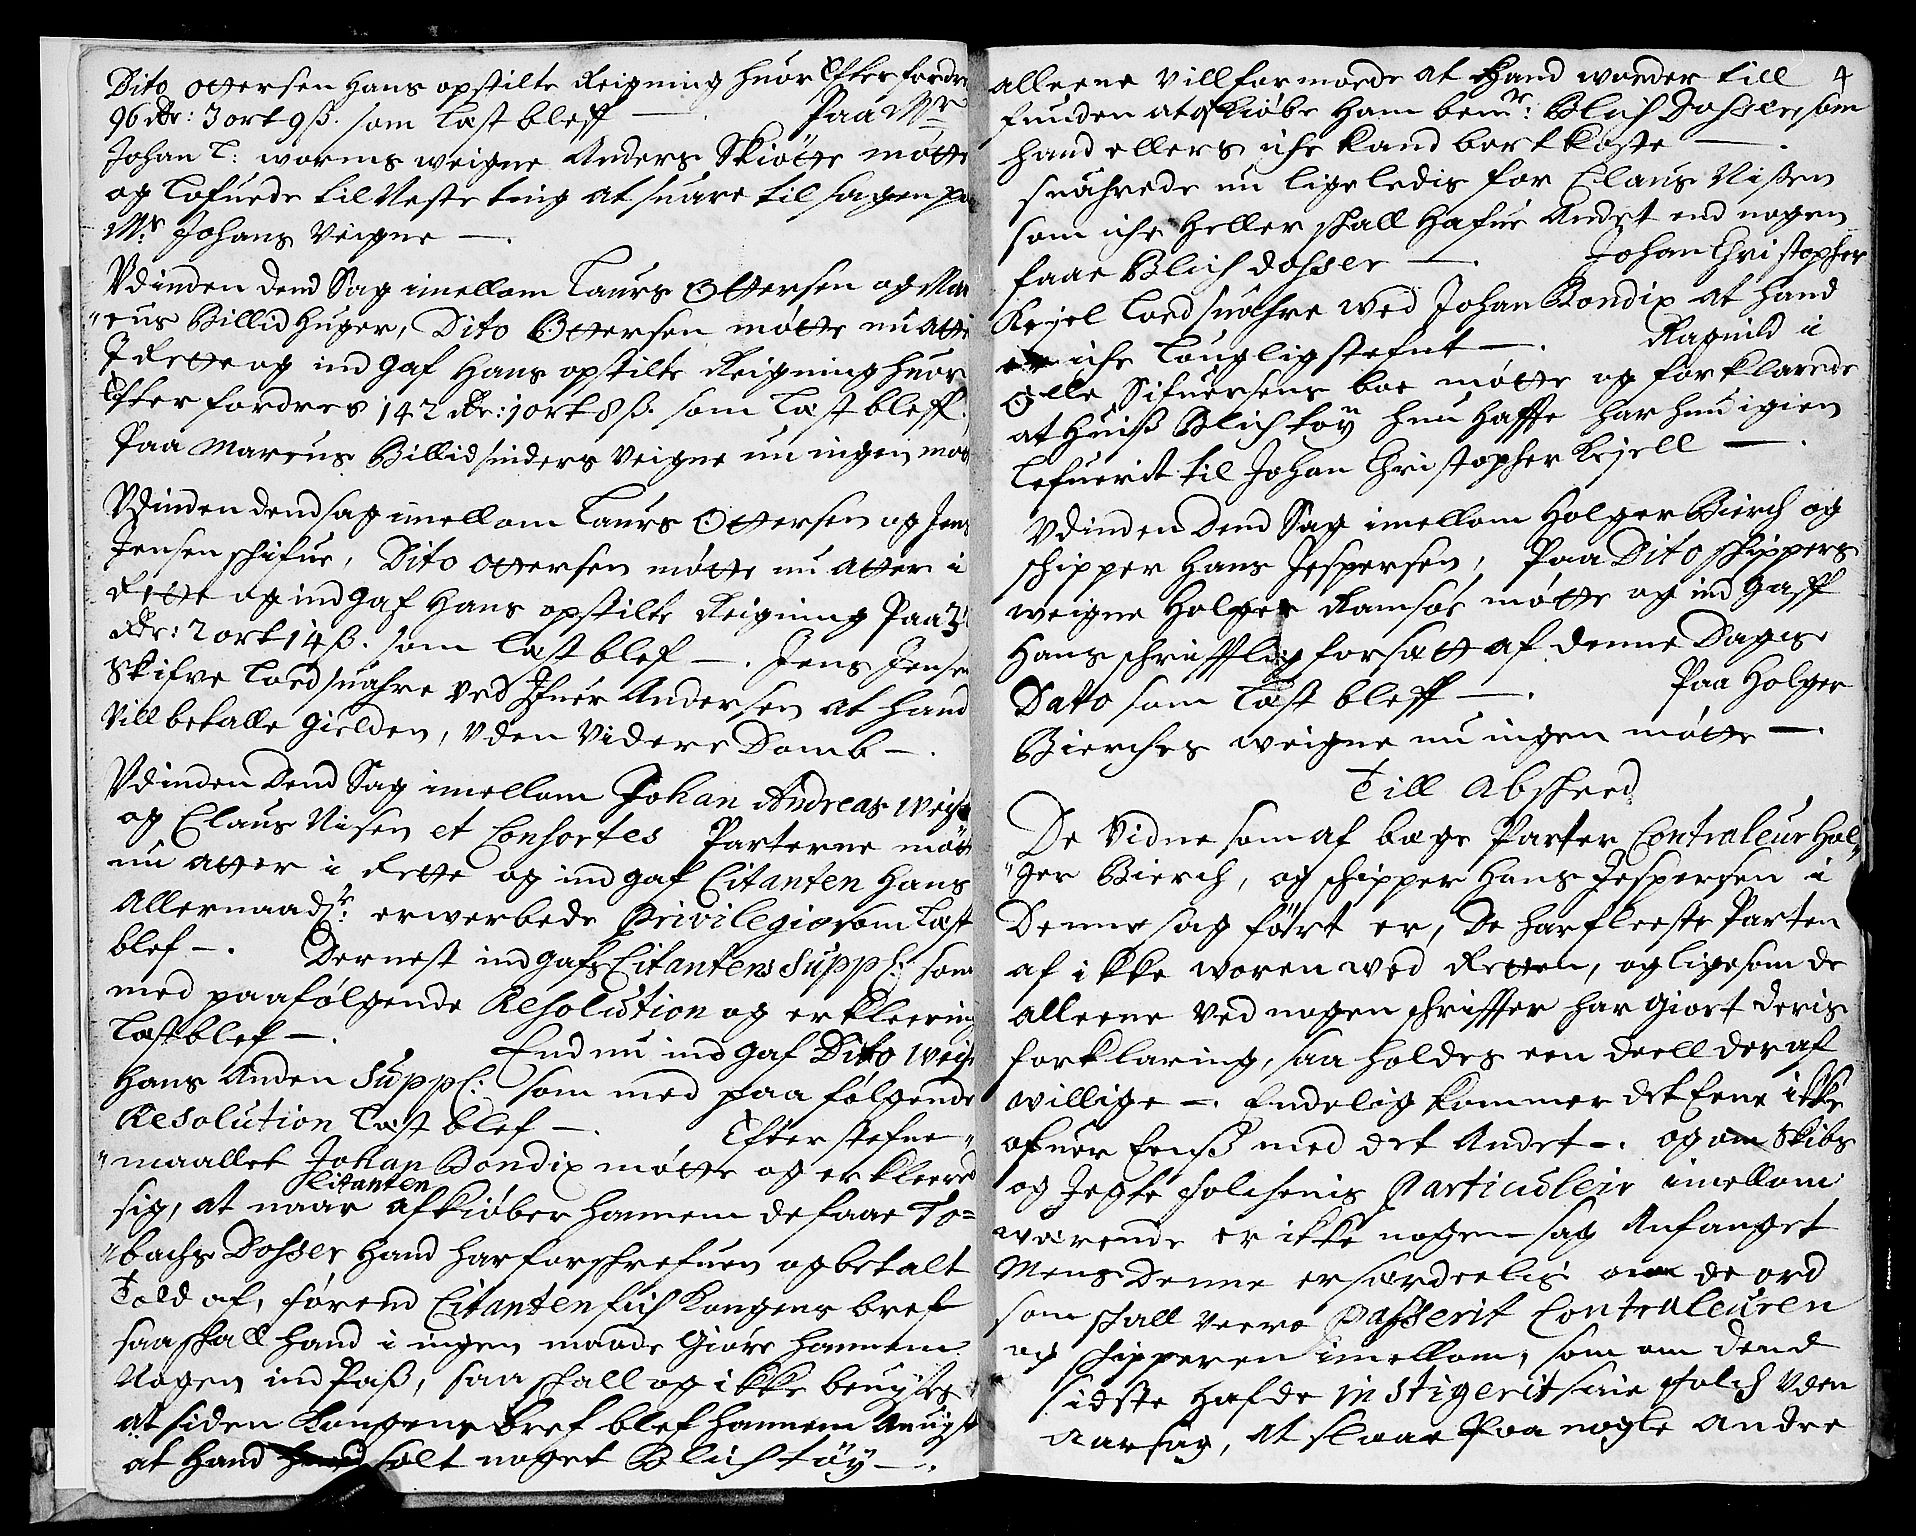 Dito Ottersen hans opstilte Reigning huor Efter fordres
96 Rdr: 3 ort 9 ß. som Læst bleff — . Paa Mr
Johan L: worms weigne Anders Skiøtte møtte
og Lofuede til Neste ting at suare til sagen paa
Mr Johans Veigne — .
Vdinden dend Sag imellom Laurs Ottersen og Mar
"cus Billidhuger, Dito Ottersen møtte nu atter
J Rette og ind gaf Hans opstilte Reigning huor
Efter fordres 142 Rdr: 1 ort 8 ß. som Læst bleff.
Paa Marcus Billidsniders Veigne nu ingen møtte
Vdinden dend sag imellom Laurs Ottersen og Jens
Jensen schifue, Dito Ottersen møtte nu atter i
Rette og ind gaf Hans opstilte Reigning Paa 3
Rdr: 2 ort 14 ß. som Læst blef — . Jens Jensen
Skifve loed suahre ved Ifuer Andersen at hand
Vill betalle gielden, Vden Videre Domb — .
Vdinden Dend Sag imellom Johan Andreas Weise
og Claus Nisen et Consortes Parterne møtte
nu atter i Rette og ind gaf Citanten Hans
Allernaadr: erwerbede Privilegio som Læst
blef — . Dernest ind gafs Citantens Suppl: som
med paafølgende Resolution og erkleering
Læst blef — . End nu ind gaf Dito Weise
Hans Anden Suppl: som med paa følgende
Resolution Læst blef — . Efter stefne-
"maallet Johan Bondix møtte og erkleerede
sig, at naar Citanten afkiøber hannem de faae To-
"bachs Dosser Hand har forschrefuen og betalt
Told af, førend Citanten fich Kongens bref
saa schall hand i ingen maade Giøre hannem
Nogen ind Paß, saa schall og ikke beuyses
at siden Kongens bref blef hannem Anuist
at Hand solt noget Blich tøy — .
4
alleene Vill formoede at Hand worder till
funden at afkiøbe Ham bemr: Blich Dosser, som
hand ellers iche kand bortkoste — .
suahrede nu ligeledis for Claus Nisen
som iche heller schall Hafue Andet end nogen
faae Blich dosser — . Johan Christopher
Kejel loed suahre wed Johan Bondix at hand
er iche Louglig stefnt — . Ragnild i
Olle Sifuersens boe møtte og forklarede
at Huiß Blich tøy hun Haffde har hun igien
Lefuerit til Johan Christopher Kejell — .
Vdinden Dend Sag imellom Holger Bierch og
schipper Hans Jespersen, Paa Dito schippers
weigne Holger Ramsøe møtte og ind gaff
Hans schriftlig forsatt af denne Dags
Dato som Læst bleff — . Paa Holger
Bierches weigne nu ingen møtte — .
Till Absched
De Vidne som af bege Parter Contraleur Hol-
"ger Bierch, og schipper Hans Jespersen i
Denne sag ført er, De har fleeste Parten
af ikke woren wed Retten, og ligesom de
alleene ved nogen schriffter har giort deris
forklaring, saa holdes een deell deraf
willige — . Endelig kommer det Eene ikke
ofuer Eenß med det Andet — . og om Skibs
og Jegte folchenis Particuleir imellom
wærende er ikke nogen sag Anfanget
Mens Denne er særdeelis om de ord
som schall veere Passerit Contraleuren
og schipperen imellom, som om dend
sidste hafde instigerit sine folch Vden
aarsag, at slaae Paa nogle Andre